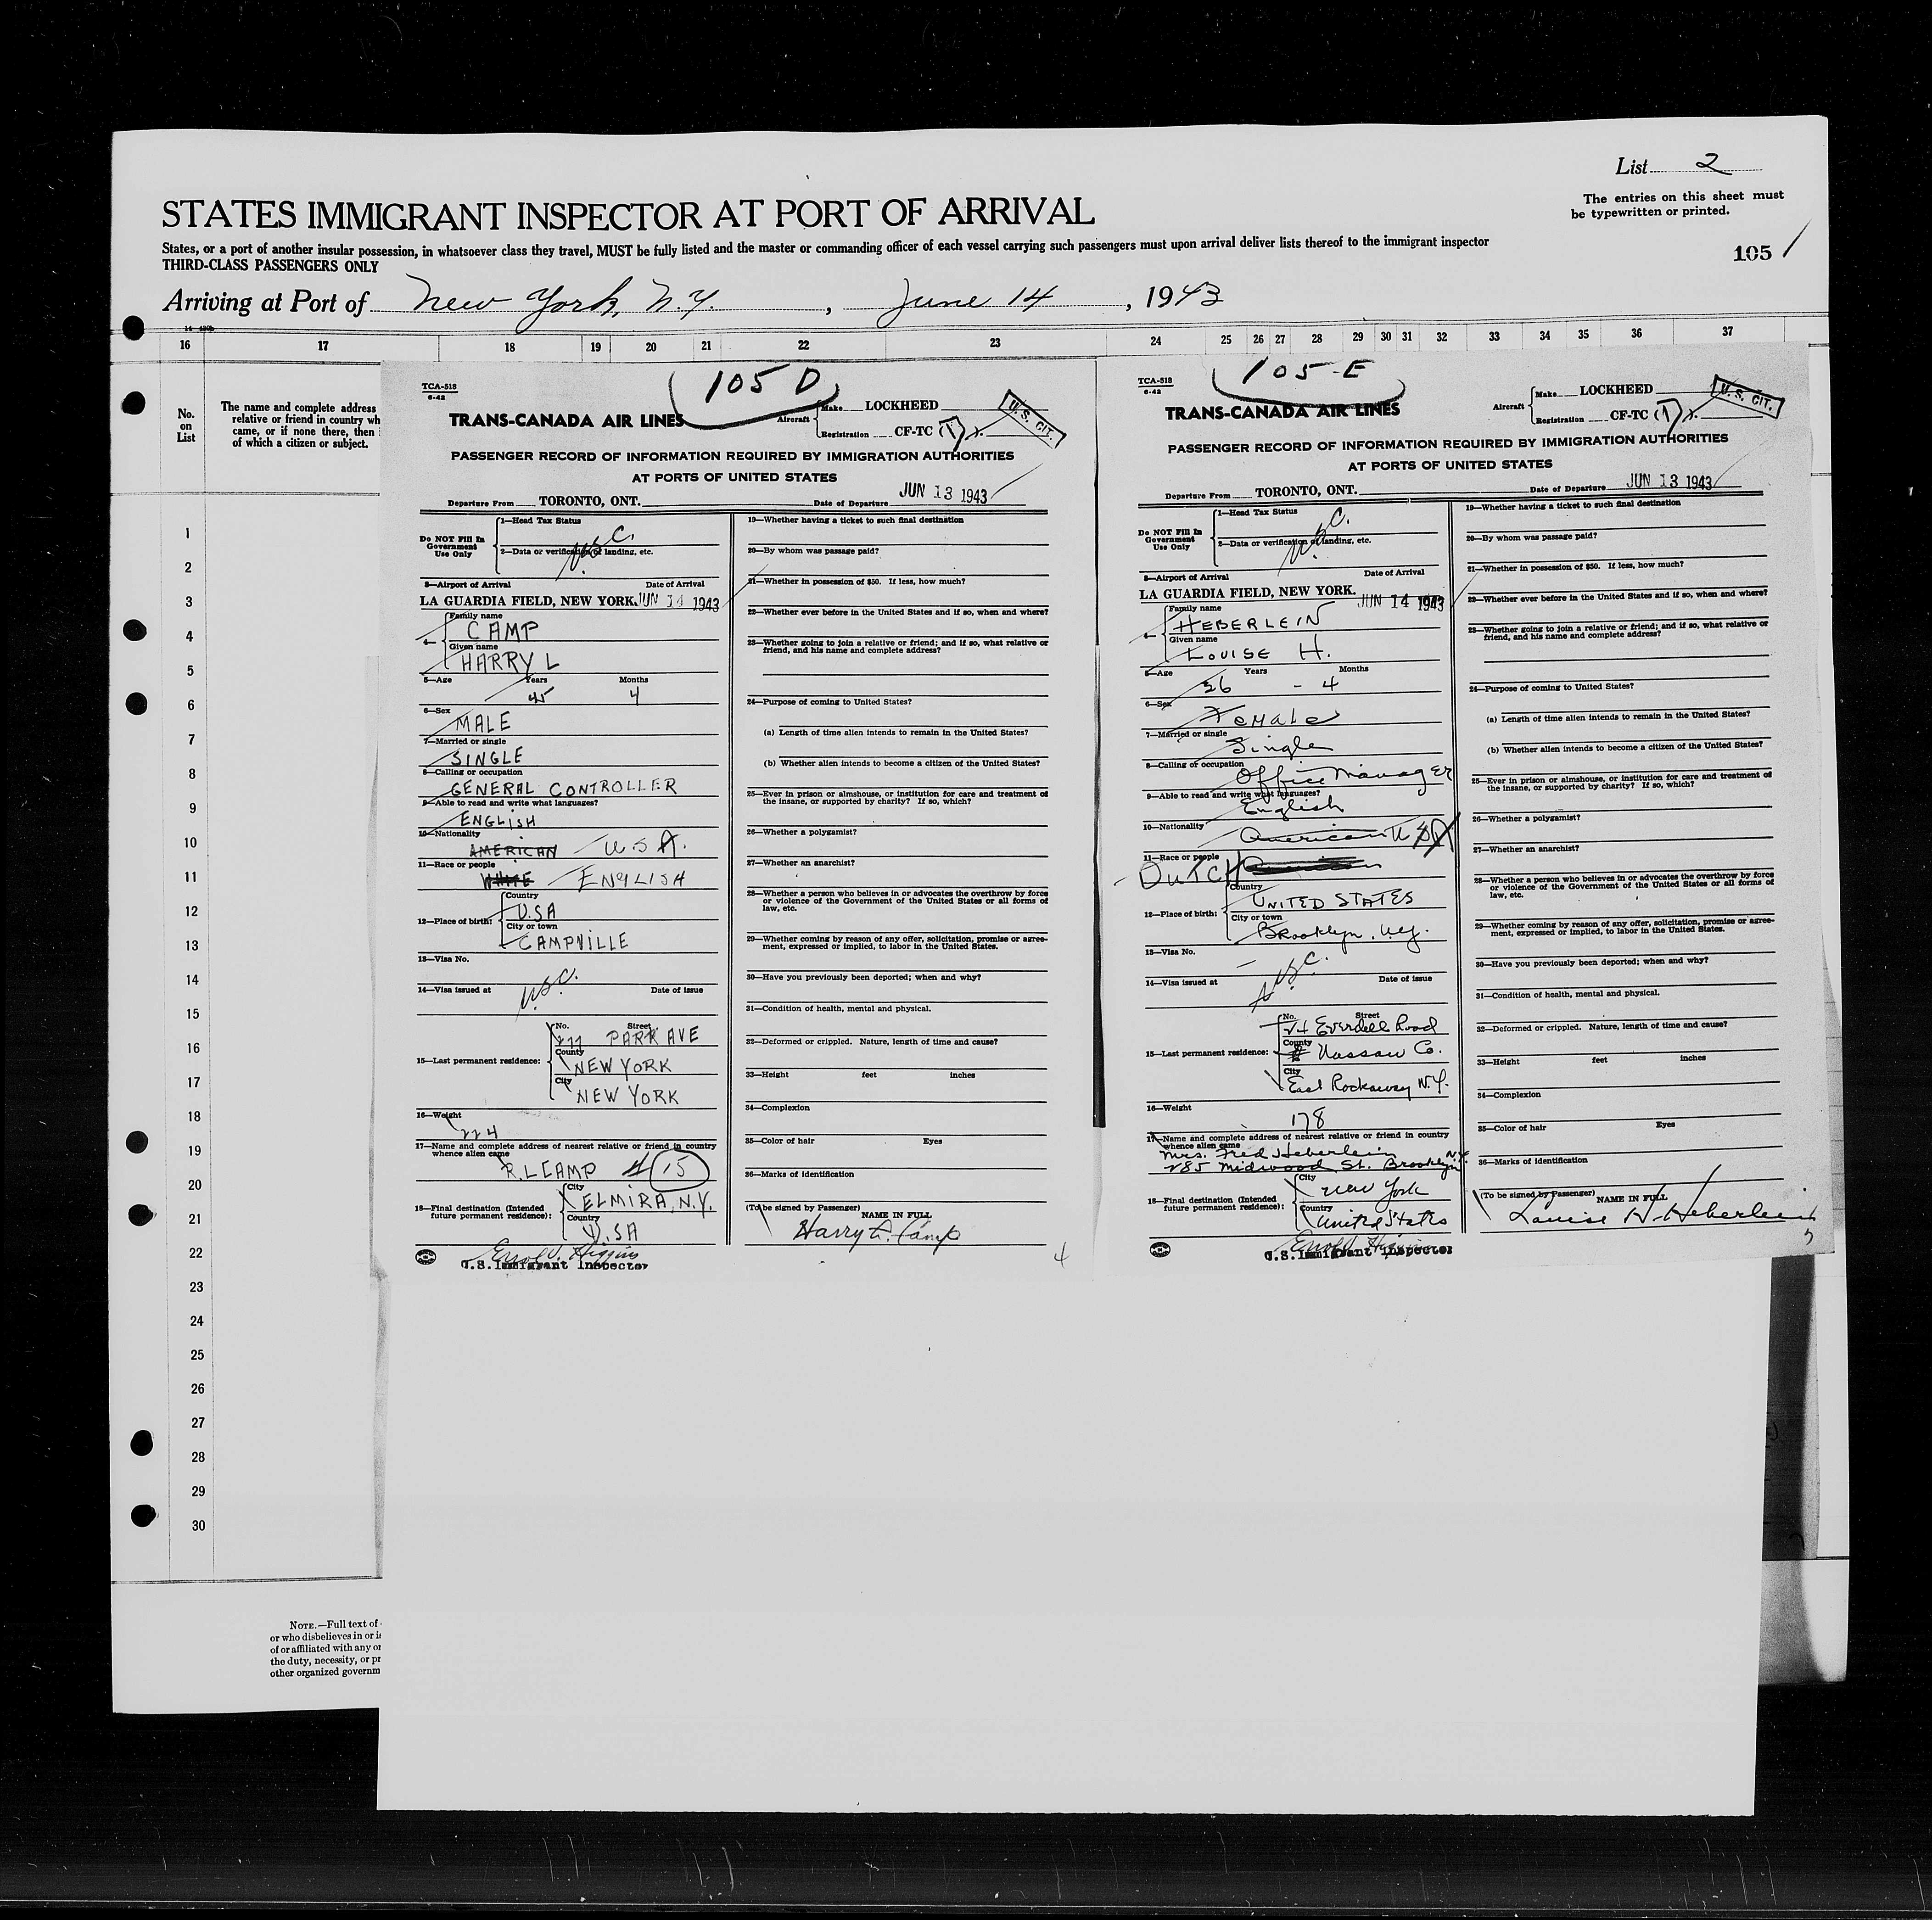 List 2
The entries on this sheet must
be typewritten or printed.
STATES IMMIGRANT INSPECTOR AT PORT OF ARRIVAL
States, or a port of another insular possession, in whatsoever class they travel, MUST be fully listed and the master or commanding officer of each vessel carrying such passengers must upon arrival deliver lists thereof to the immigrant inspector
THIRD-CLASS PASSENGERS ONLY
105
Arriving at Port of New York, N.Y. , June 14 , 1943
16 17 18 19 20 21 22 23 24 25 26 27 28 29 30 31 32 33 34 35 36 37
No.
on
List
The name and complete address
relative or friend in country wh
came, or if none there, then
of which a citizen or subject.
1
2
3
4
5
6
7
8
9
10
11
12
13
14
15
16
17
18
19
20
21
22
23
24
25
26
27
28
29
30
NOTE.—Full text of
or who disbelieves in or is
of or affiliated with any or
the duty, necessity, or pr
other organized governm
TCA-518
6-42
105 D
TRANS-CANADA AIR LINES
Aircraft
Make LOCKHEED
Registration CF-TC (T)
U. S. CIT.
PASSENGER RECORD OF INFORMATION REQUIRED BY IMMIGRATION AUTHORITIES
AT PORTS OF UNITED STATES
Departure From TORONTO, ONT. Date of Departure JUN 13 1943
Do NOT Fill In
Government
Use Only
1—Head Tax Status
U.S.C.
2—Data or verification of landing, etc.
3—Airport of Arrival Date of Arrival
LA GUARDIA FIELD, NEW YORK. JUN 14 1943
4—
Family name
CAMP
Given name
HARRY L
5—Age Years Months
45 4
6—Sex
MALE
7—Married or single
SINGLE
8—Calling or occupation
GENERAL CONTROLLER
9—Able to read and write what languages?
ENGLISH
10—Nationality
AMERICAN U S A.
11—Race or people
WHITE ENGLISH
12—Place of birth:
Country
U.SA
City or town
CAMPVILLE
13—Visa No.
U.S.C.
14—Visa issued at Date of issue
15—Last permanent residence:
No. Street
277 PARK AVE
County
NEW YORK
City
NEW YORK
16—Weight
224
17—Name and complete address of nearest relative or friend in country
whence alien came
R.L CAMP 15
18—Final destination (Intended
future permanent residence):
City
ELMIRA, N.Y.
Country
U.SA
Errol J. Higgins
U.S. Immigrant Inspector
19—Whether having a ticket to such final destination
20—By whom was passage paid?
21—Whether in possession of $50. If less, how much?
22—Whether ever before in the United States and if so, when and where?
23—Whether going to join a relative or friend; and if so, what relative or
friend, and his name and complete address?
24—Purpose of coming to United States?
(a) Length of time alien intends to remain in the United States?
(b) Whether alien intends to become a citizen of the United States?
25—Ever in prison or almshouse, or institution for care and treatment of
the insane, or supported by charity? If so, which?
26—Whether a polygamist?
27—Whether an anarchist?
28—Whether a person who believes in or advocates the overthrow by force
or violence of the Government of the United States or all forms of
law, etc.
29—Whether coming by reason of any offer, solicitation, promise or agree-
ment, expressed or implied, to labor in the United States.
30—Have you previously been deported; when and why?
31—Condition of health, mental and physical.
32—Deformed or crippled. Nature, length of time and cause?
33—Height feet inches
34—Complexion
35—Color of hair Eyes
36—Marks of identification
(To be signed by Passenger) NAME IN FULL
Harry L. Camp
4
TCA-518
6-42
105-E
TRANS-CANADA AIR LINES
Aircraft
Make LOCKHEED
Registration CF-TC (T)
U. S. CIT.
PASSENGER RECORD OF INFORMATION REQUIRED BY IMMIGRATION AUTHORITIES
AT PORTS OF UNITED STATES
Departure From TORONTO, ONT. Date of Departure JUN 13 1943
Do NOT Fill In
Government
Use Only
1—Head Tax Status
U.S.C.
2—Data or verification of landing, etc.
3—Airport of Arrival Date of Arrival
LA GUARDIA FIELD, NEW YORK. JUN 14 1943
4—
Family name
HEBERLEIN
Given name
LOUISE H.
5—Age Years Months
36 - 4
6—Sex
Female
7—Married or single
Single
8—Calling or occupation
Office Manager
9—Able to read and write what languages?
English
10—Nationality
American U S A
11—Race or people
DUTCH
12—Place of birth:
Country
UNITED STATES
City or town
Brooklyn, N.Y.
13—Visa No.
U.S.C.
14—Visa issued at Date of issue
15—Last permanent residence:
No. Street
24 Everdell Road
County
Nassau Co.
City
East Rockaway N.Y.
16—Weight
178
17—Name and complete address of nearest relative or friend in country
whence alien came
Mrs. Fred Heberlein
285 Midwood St. Brooklyn N.Y.
18—Final destination (Intended
future permanent residence):
City
New York
Country
United States
Errol J. Higgins
U.S. Immigrant Inspector
19—Whether having a ticket to such final destination
20—By whom was passage paid?
21—Whether in possession of $50. If less, how much?
22—Whether ever before in the United States and if so, when and where?
23—Whether going to join a relative or friend; and if so, what relative or
friend, and his name and complete address?
24—Purpose of coming to United States?
(a) Length of time alien intends to remain in the United States?
(b) Whether alien intends to become a citizen of the United States?
25—Ever in prison or almshouse, or institution for care and treatment of
the insane, or supported by charity? If so, which?
26—Whether a polygamist?
27—Whether an anarchist?
28—Whether a person who believes in or advocates the overthrow by force
or violence of the Government of the United States or all forms of
law, etc.
29—Whether coming by reason of any offer, solicitation, promise or agree-
ment, expressed or implied, to labor in the United States.
30—Have you previously been deported; when and why?
31—Condition of health, mental and physical.
32—Deformed or crippled. Nature, length of time and cause?
33—Height feet inches
34—Complexion
35—Color of hair Eyes
36—Marks of identification
(To be signed by Passenger) NAME IN FULL
Louise H. Heberlein